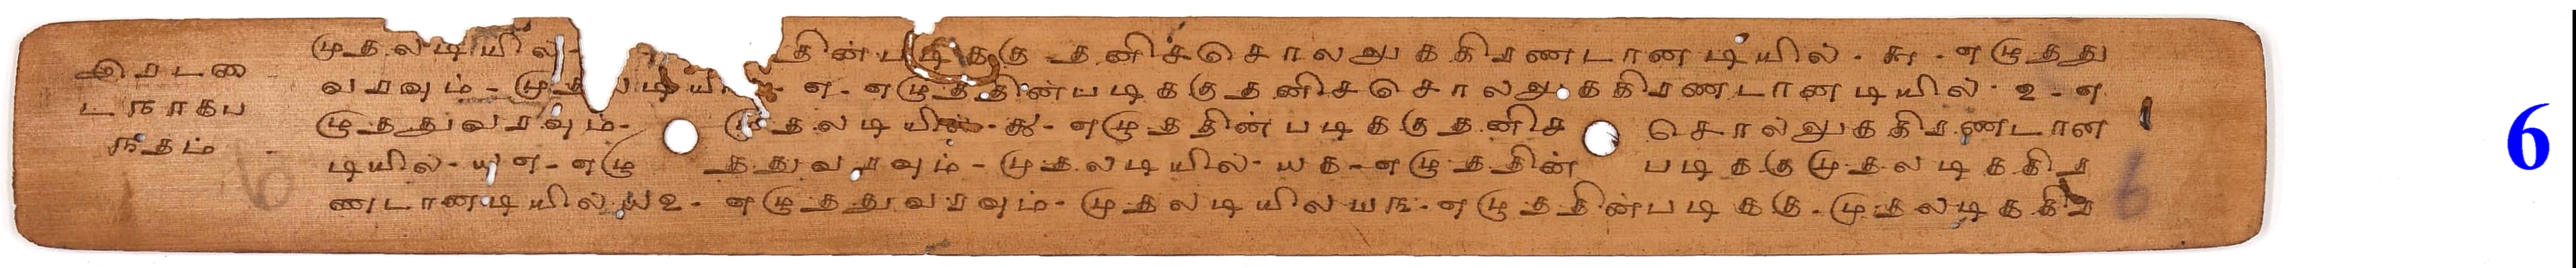 இரடண
டநாகப
ந்தம்
முதலடியில் தின்படிககு தனிசசொலலுககிரணடானடியில். ௯ - எழுதது
வரவும் - முத டியி - எ - எழுததின்படிககுதனிசசொல்லுககிரணடானடியில் - உ - எ
ழுததுவரவும் - முதலடியில் - ௬ - எழுததின்படிககுதனிச சொல்லுககிரணடான
டியில் - யஎ - எழு ததுவரவும் - முதலடியில் - யக - எழுததின் படிககுமுதலடிககிர
ணடானடியிலயஉ - எழுததுவரவும் - முதலடியிலயரு - எழுததின்படிககு - முதலடிககிர
6
6
6